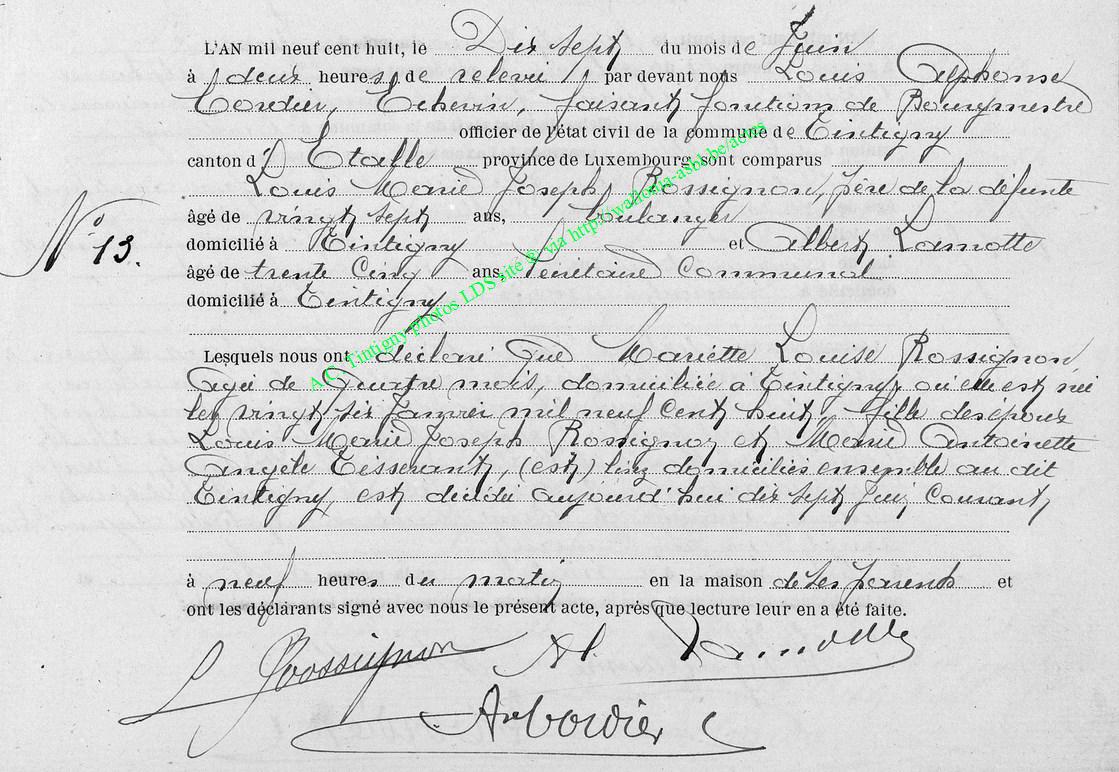 L'AN mil neuf cent huit, le Dix sept du mois de Juin
à deux heures de relevée par devant nous Louis Alphonse
Cordier, Echevin, faisant fonctions de Bourgmestre
officier de l'état civil de la commune de Tintigny
canton d' Etalle province de Luxembourg, sont comparus
Louis Marie Joseph Rossignon, père de la défunte
âgé de vingt sept ans, boulanger
N° 13. domicilié à Tintigny et Albert Lamotte
âgé de trente cinq ans, Secrétaire communal
domicilié à Tintigny
Lesquels nous ont déclaré que Mariette Louise Rossignon,
agée de quatre mois, domiciliée à Tintigny, où elle est née
le vingt six Janvier mil neuf cent huit, fille des époux
Louis Marie Joseph Rossignon et Marie Antoinette
Angèle Tisserant, (est) domiciliés ensemble au dit
Tintigny, est décédée aujourd'hui dix sept Juin courant,
à neuf heures du matin en la maison de ses parents et
ont les déclarants signé avec nous le présent acte, après que lecture leur en a été faite.
L Rossignon Al. Lamotte
Cordier
A.C. Tintigny photos LDS site & via http://wallonia-asbl.be/actes